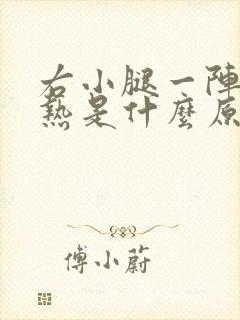 右小腿一陣
熱是什麼原
傅小蔚